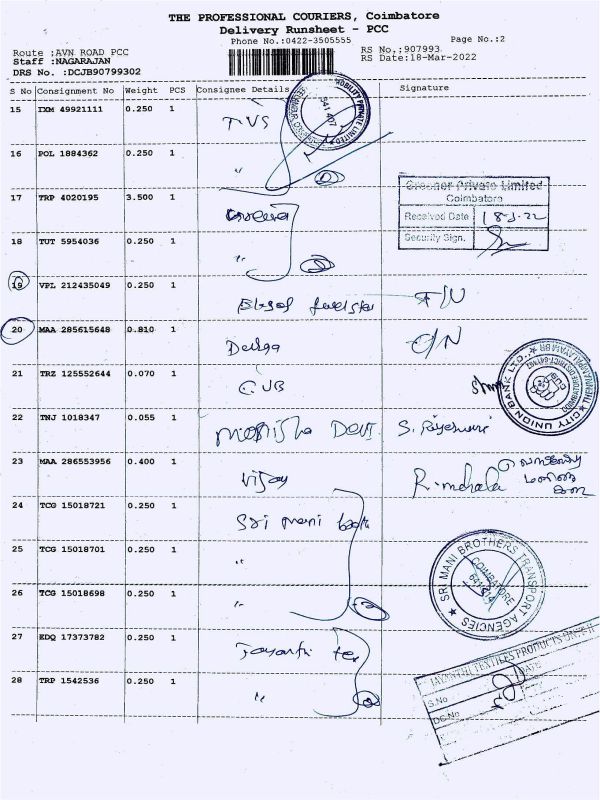 THE PROFESSIONAL COURIERS, Coimbatore
Delivery Runsheet - PCC
Phone No.:0422-3505555
Page No.:2
Route :AVN ROAD PCC
RS No.;907993
Staff :NAGARAJAN
RS Date:18-Mar-2022
DRS No. :DCJB90799302
S No Consignment No Weight PCS Consignee Details Signature
15 IXM 49921111 0.250 1
TVS
641 407
MOBILITY PRIVATE LIMITED
16 POL 1884362 0.250 1
"
17 TRP 4020195 3.500 1
Greenor Private Limited
Coimbatore
Received Date 18-3-22
Security Sign.
18 TUT 5954036 0.250 1
"
19 VPL 212435049 0.250 1
20 MAA 285615648 0.810 1
Durga
21 TRZ 125552644 0.070 1
CUB
CITY UNION BANK LTD.,
22 TNJ 1018347 0.055 1
Monisha Devi
23 MAA 286553956 0.400 1
Vijay
24 TCG 15018721 0.250 1
Sri mani
25 TCG 15018701 0.250 1
"
26 TCG 15018698 0.250 1
"
SRI MANI BROTHERS TRANSPORT AGENCIES
COIMBATORE
27 EDQ 17373782 0.250 1
Jayanti tex
28 TRP 1542536 0.250 1
"
S.No
DATE
DC-No